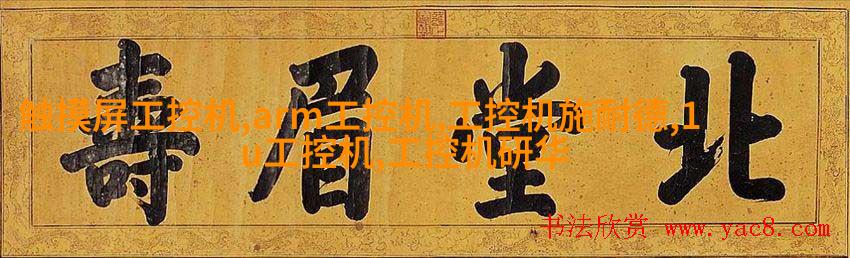 北堂眉壽
触摸屏工控机,arm工控机,工控机施耐德,1
u工控机,工控机研华
书法欣赏 www.yac8.com